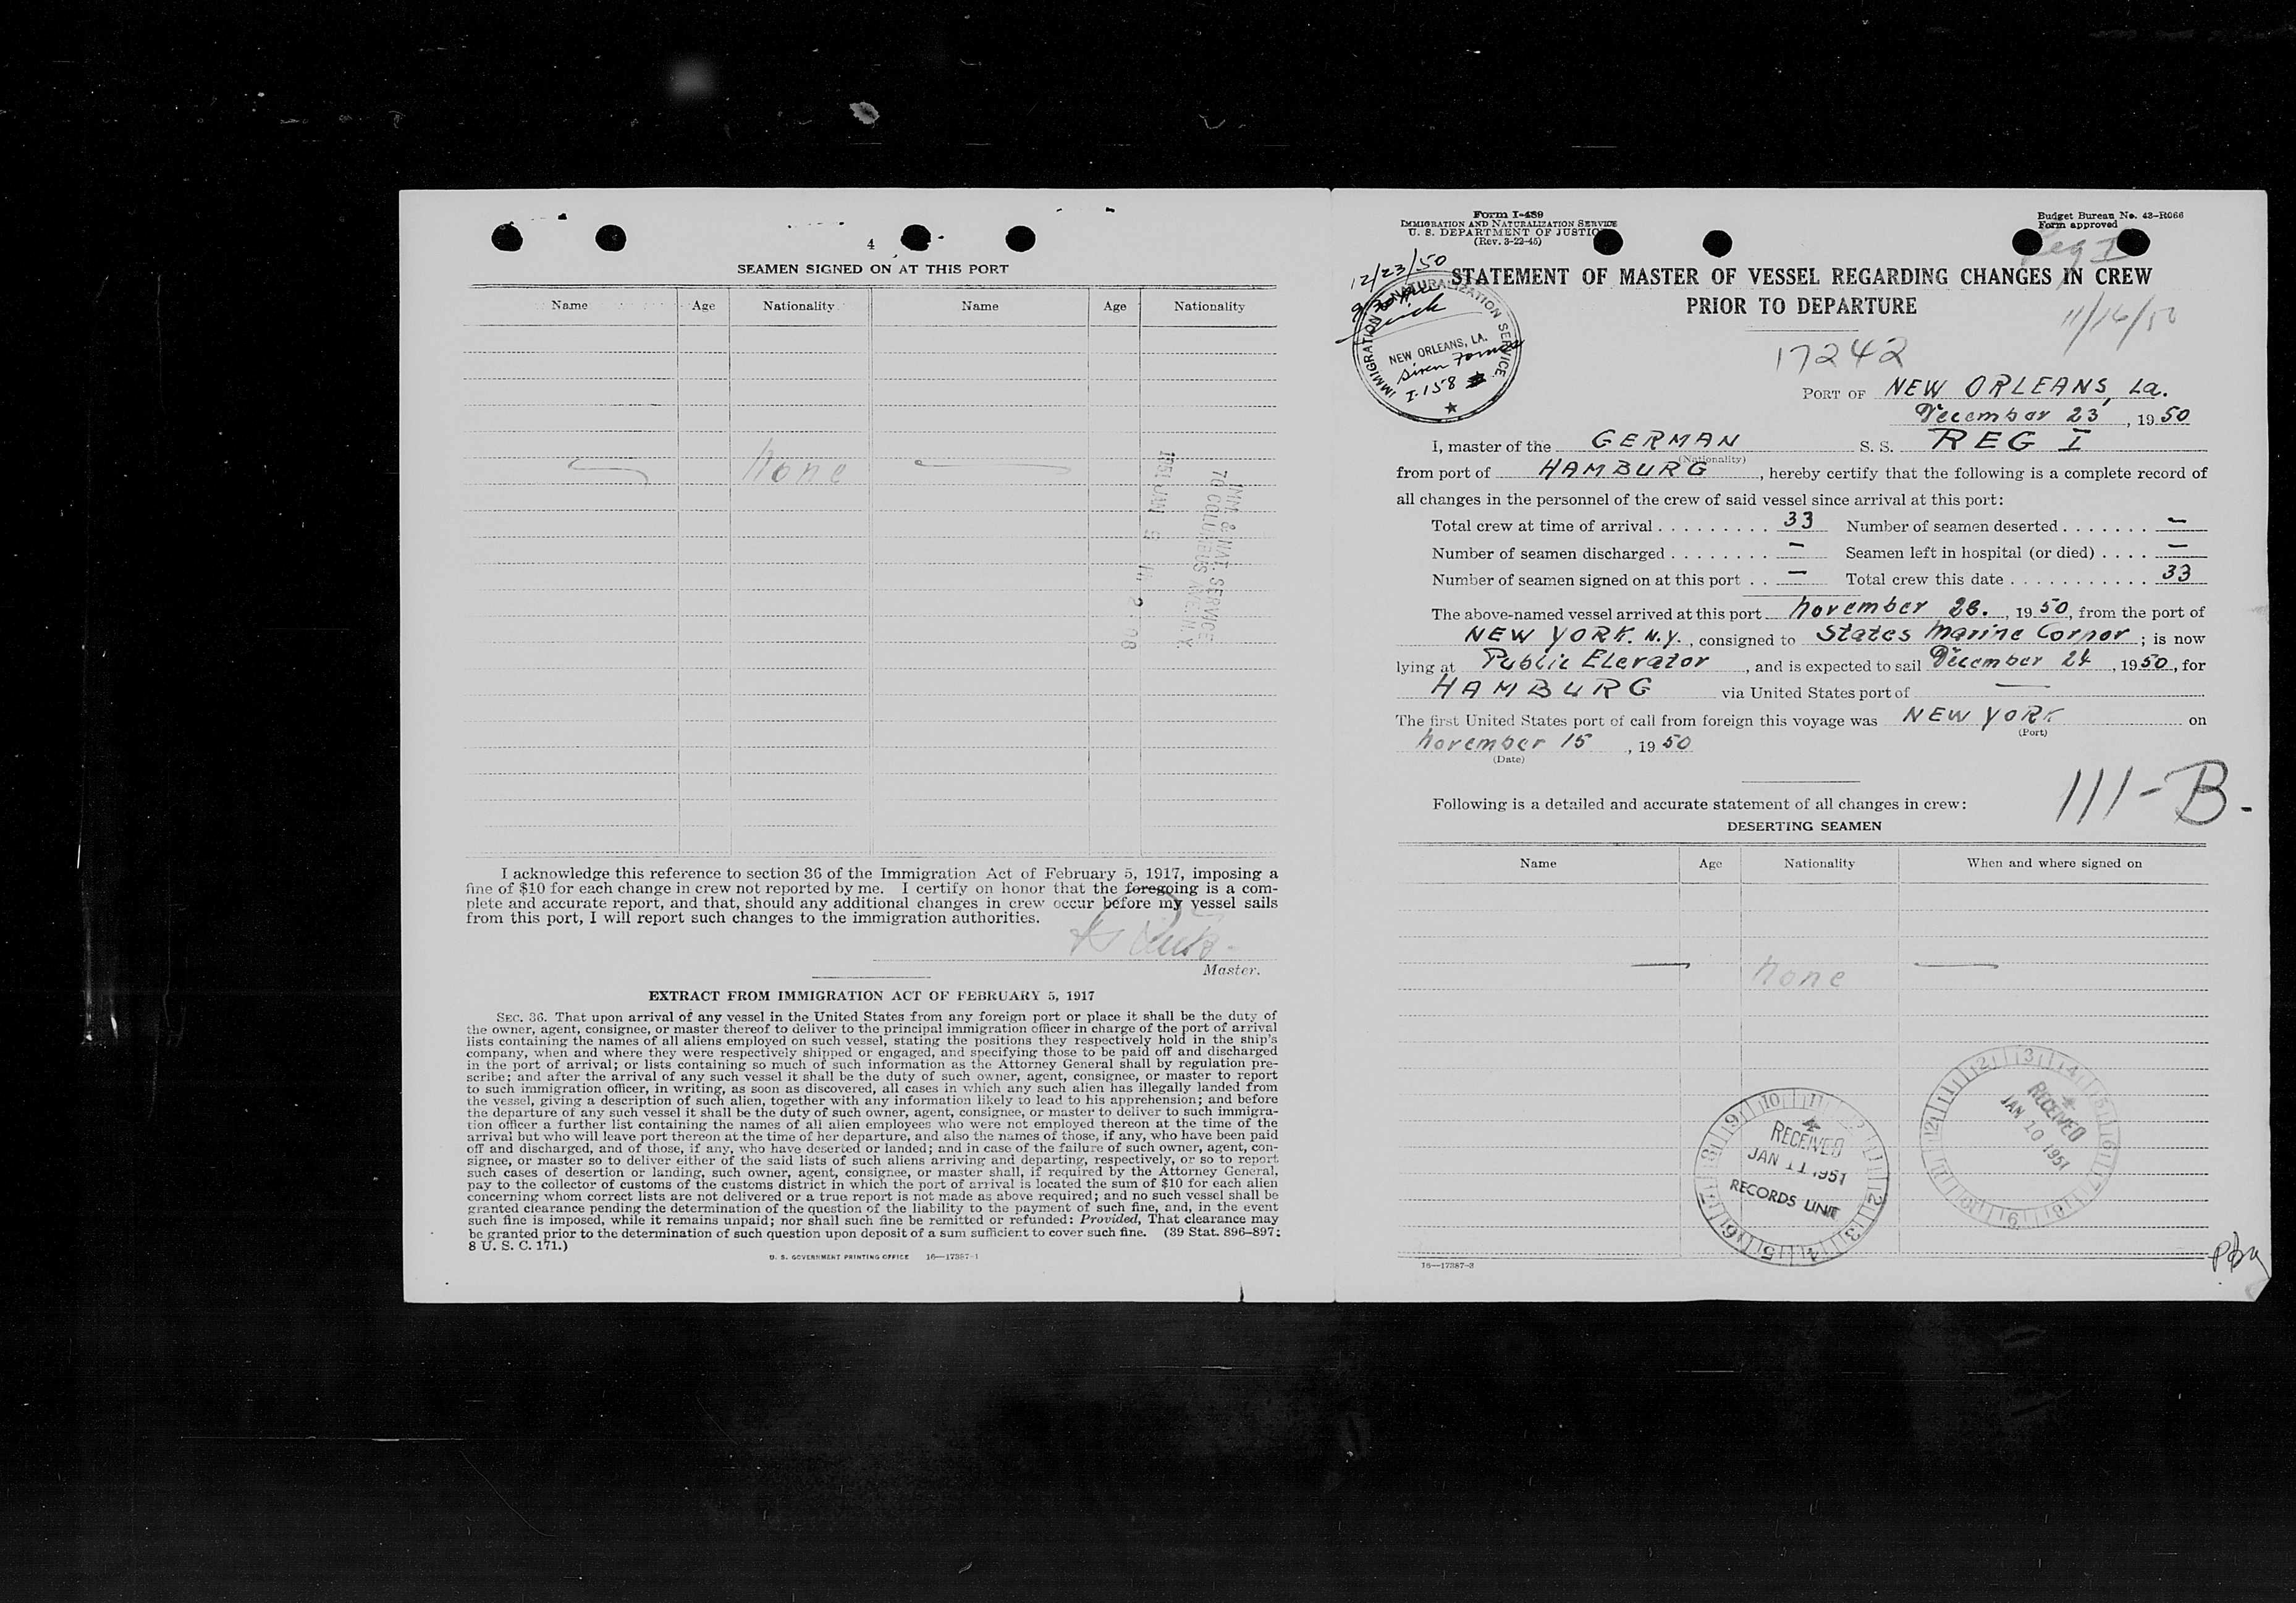 4
SEAMEN SIGNED ON AT THIS PORT
Name Age Nationality Name Age Nationality
None
IMM. & NAT. SERVICE
70 COLUMBUS AVE. N.Y.
1951 JAN 9
I acknowledge this reference to section 36 of the Immigration Act of February 5, 1917, imposing a
fine of $10 for each change in crew not reported by me. I certify on honor that the foregoing is a com-
plete and accurate report, and that, should any additional changes in crew occur before my vessel sails
from this port, I will report such changes to the immigration authorities.
Master.
EXTRACT FROM IMMIGRATION ACT OF FEBRUARY 5, 1917
SEC. 36. That upon arrival of any vessel in the United States from any foreign port or place it shall be the duty of
the owner, agent, consignee, or master thereof to deliver to the principal immigration officer in charge of the port of arrival
lists containing the names of all aliens employed on such vessel, stating the positions they respectively hold in the ship's
company, when and where they were respectively shipped or engaged, and specifying those to be paid off and discharged
in the port of arrival; or lists containing so much of such information as the Attorney General shall by regulation pre-
scribe; and after the arrival of any such vessel it shall be the duty of such owner, agent, consignee, or master to report
to such immigration officer, in writing, as soon as discovered, all cases in which any such alien has illegally landed from
the vessel, giving a description of such alien, together with any information likely to lead to his apprehension; and before
the departure of any such vessel it shall be the duty of such owner, agent, consignee, or master to deliver to such immigra-
tion officer a further list containing the names of all alien employees who were not employed thereon at the time of the
arrival but who will leave port thereon at the time of her departure, and also the names of those, if any, who have been paid
off and discharged, and of those, if any, who have deserted or landed; and in case of the failure of such owner, agent, con-
signee, or master so to deliver either of the said lists of such aliens arriving and departing, respectively, or so to report
such cases of desertion or landing, such owner, agent, consignee, or master shall, if required by the Attorney General,
pay to the collector of customs of the customs district in which the port of arrival is located the sum of $10 for each alien
concerning whom correct lists are not delivered or a true report is not made as above required; and no such vessel shall be
granted clearance pending the determination of the question of the liability to the payment of such fine, and, in the event
such fine is imposed, while it remains unpaid; nor shall such fine be remitted or refunded: Provided, That clearance may
be granted prior to the determination of such question upon deposit of a sum sufficient to cover such fine. (39 Stat. 896-897;
8 U. S. C. 171.)
U. S. GOVERNMENT PRINTING OFFICE 16—17387-1
Form I-489
IMMIGRATION AND NATURALIZATION SERVICE
U. S. DEPARTMENT OF JUSTICE
(Rev. 3-22-45)
Budget Bureau No. 43-R066
Form approved
Reg I
12/23/50
STATEMENT OF MASTER OF VESSEL REGARDING CHANGES IN CREW
PRIOR TO DEPARTURE
11/16/50
IMMIGRATION & NATURALIZATION SERVICE
NEW ORLEANS, LA.
I-158
17242
PORT OF NEW ORLEANS, La.
December 23, 1950
I, master of the GERMAN S. S. REG I
(Nationality)
from port of HAMBURG, hereby certify that the following is a complete record of
all changes in the personnel of the crew of said vessel since arrival at this port:
Total crew at time of arrival 33 Number of seamen deserted —
Number of seamen discharged — Seamen left in hospital (or died) —
Number of seamen signed on at this port — Total crew this date 33
The above-named vessel arrived at this port November 28., 1950, from the port of
NEW YORK. N.Y., consigned to States Marine Corner; is now
lying at Public Elevator, and is expected to sail December 24, 1950, for
HAMBURG via United States port of —
The first United States port of call from foreign this voyage was NEW YORK on
(Port)
November 15, 1950
(Date)
111-B-
Following is a detailed and accurate statement of all changes in crew:
DESERTING SEAMEN
Name Age Nationality When and where signed on
— None —
RECEIVED
JAN 11 1951
RECORDS UNIT
RECEIVED
JAN 10 1951
16—17387-3